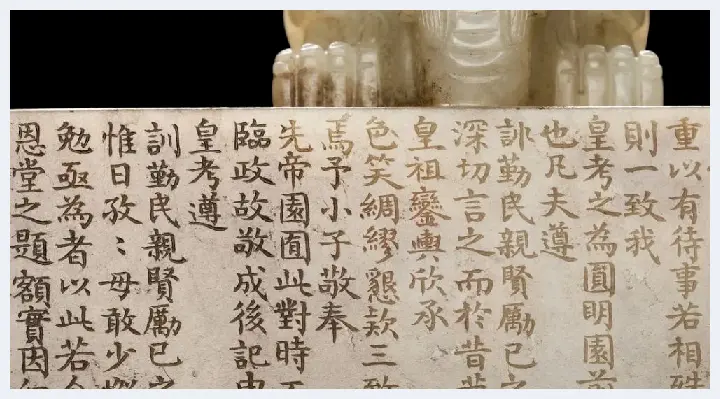 重以有待事若相殊
則一致我
皇考之為圓明園前
也凡夫遵
訓勤民親賢勵己之
深切言之而於昔
皇祖鑾輿欣承
色笑綢繆懇款三致
焉予小子敬奉
先帝園囿此對時
臨政故敬成後記
皇考遵
訓勤民親賢勵己之
惟日孜〻毋敢少
勉亟為者以此若
恩堂之題額實因